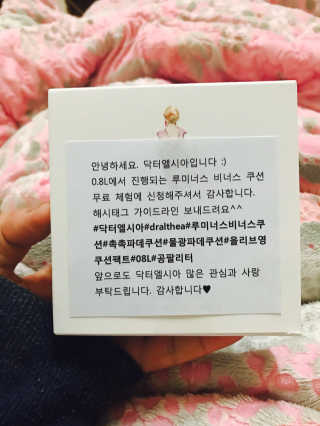 안녕하세요. 닥터엘시아입니다 :)
0.8L에서 진행되는 루미너스 비너스 쿠션
무료 체험에 신청해주셔서 감사합니다.
해시태그 가이드라인 보내드려요^^
#닥터엘시아#dralthea#루미너스비너스쿠
션#촉촉파데쿠션#물광파데쿠션#올리브영
쿠션팩트#08L#공팔리터
앞으로도 닥터엘시아 많은 관심과 사랑
부탁드립니다. 감사합니다♥